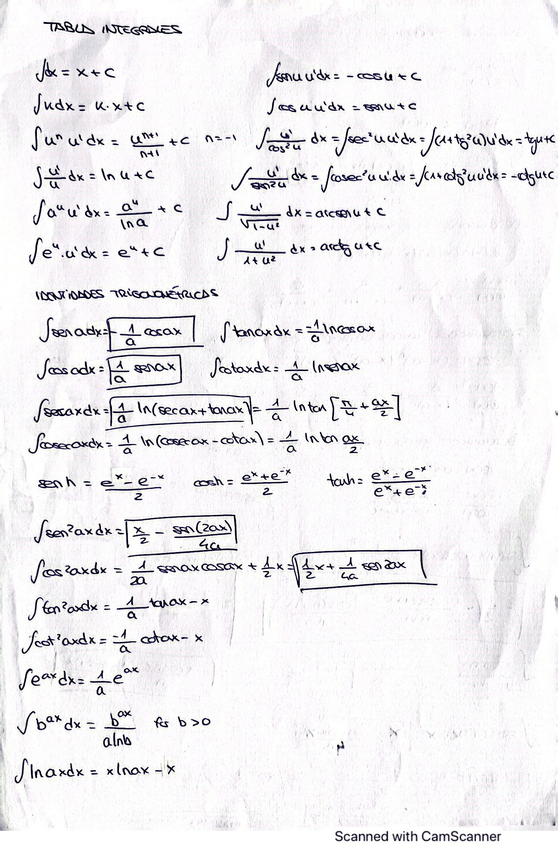 TABLA INTEGRALES
∫dx = x + c ∫senu u'dx = -cosu + c
∫kdx = k·x + c ∫cosu u'dx = senu + c
∫uⁿ u'dx = uⁿ⁺¹/n+1 + c n=-1 ∫u'/cos²u dx = ∫sec²u u'dx = ∫(1+tg²u)u'dx = tgu+c
∫u'/u dx = ln u + c ∫u'/sen²u dx = ∫cosec²u u'dx = ∫(1+cotg²u u'dx = -ctgu+c
∫aᵘ u'dx = aᵘ/lna + c ∫u'/√1-u² dx = arcsenu + c
∫eᵘ·u'dx = eᵘ + c ∫u'/1+u² dx = arctgu+c
IDENTIDADES TRIGONOMÉTRICAS
∫senaxdx = -1/a cosax ∫tanaxdx = -1/a lncosax
∫cosaxdx = 1/a senax ∫cotaxdx = 1/a lnsenax
∫secaxdx = 1/a ln(secax+tanax) = 1/a lntan [π/4 + ax/2]
∫cosecaxdx = 1/a ln(cosecax - cotax) = 1/a lntan ax/2
senh = eˣ-e⁻ˣ/2 cosh = eˣ+e⁻ˣ/2 tanh = eˣ-e⁻ˣ/eˣ+e⁻ˣ
∫sen²axdx = x/2 - sen(2ax)/4a
∫cos²axdx = 1/2a senaxcosax + 1/2 x = 1/2 x + 1/4a sen2ax
∫tan²axdx = 1/a tanax - x
∫cot²axdx = -1/a cotax - x
∫eᵃˣdx = 1/a eᵃˣ
∫bᵃˣdx = bᵃˣ/alnb b>0
∫lnaxdx = xlnax - x
Scanned with CamScanner